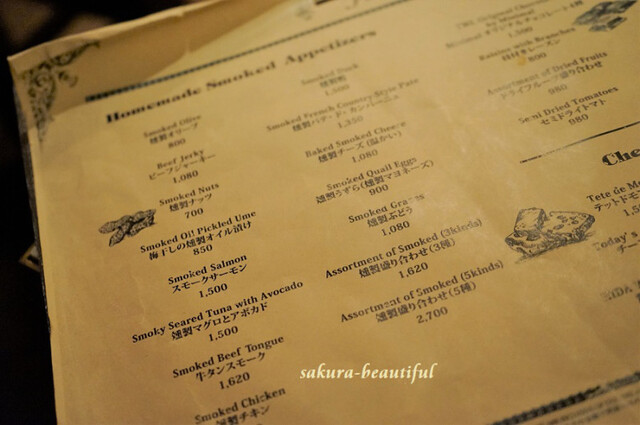 Homemade Smoked Appetizers
Smoked Olive
燻製オリーブ
800
Beef Jerky
ビーフジャーキー
1,080
Smoked Nuts
燻製ナッツ
700
Smoked Oil Pickled Ume
梅干しの燻製オイル漬け
850
Smoked Salmon
スモークサーモン
1,500
Smoky Seared Tuna with Avocado
燻製マグロとアボカド
1,500
Smoked Beef Tongue
牛タンスモーク
1,620
Smoked Chicken
燻製チキン
Smoked Duck
燻製鴨
1,500
Smoked French Country Style Pate
燻製パテ・ド・カンパーニュ
1,350
Baked Smoked Cheese
燻製チーズ(温かい)
1,080
Smoked Quail Eggs
燻製うずら(燻製マヨネーズ)
900
Smoked Grapes
燻製ぶどう
1,080
Assortment of Smoked (3kinds)
燻製盛り合わせ(3種)
1,620
Assortment of Smoked (5kinds)
燻製盛り合わせ(5種)
2,700
オリジナルチョコレート4種
1,500
Raisins with Branches
枝付きレーズン
800
Assortment of Dried Fruits
ドライフルーツ盛り合わせ
980
Semi Dried Tomatoes
セミドライトマト
980
Che
Tete de M
テットドモ
Today's
チー
sakura-beautiful